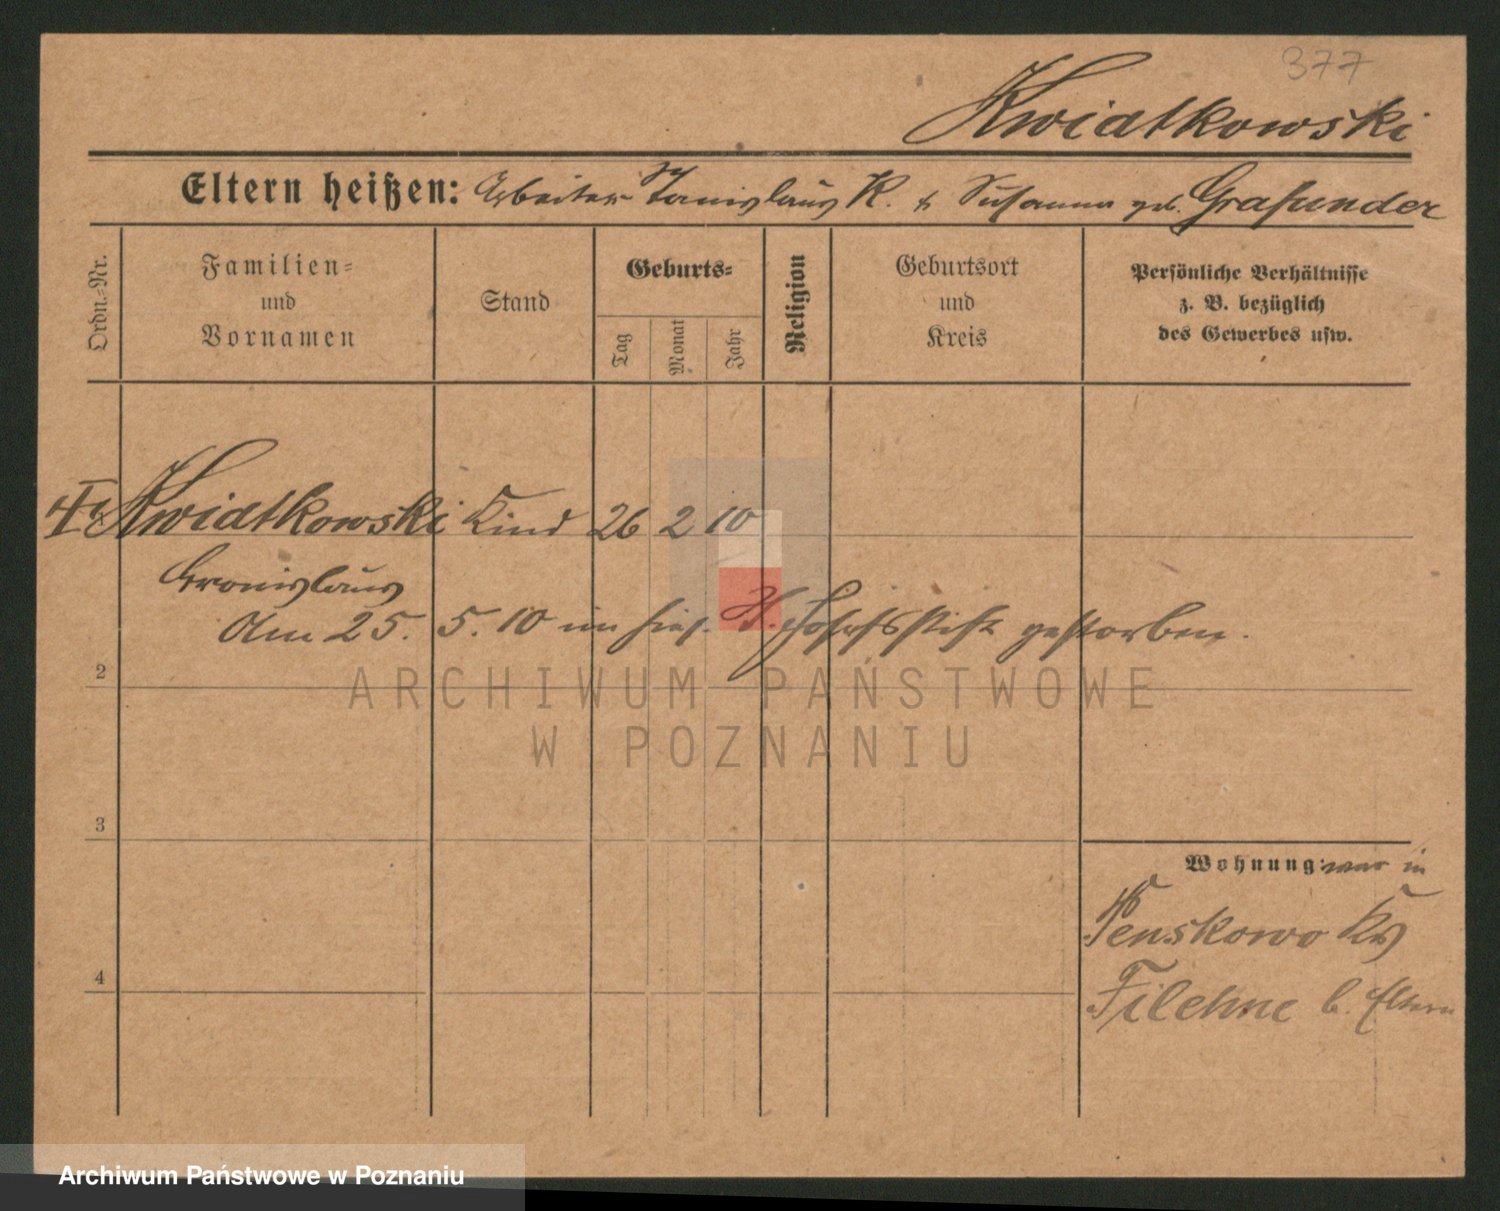 377
Kwiatkowski
Eltern heißen: Arbeiter Stanislaus K. & Susanna geb. Grasunder
Ordn.-Nr.
Familien-
und
Vornamen
Stand
Geburts-
Tag
Monat
Jahr
Religion
Geburtsort
und
Kreis
Persönliche Verhältnisse
z. B. bezüglich
des Gewerbes usw.
Kwiatkowski Kind 26 2 10
Bronislaus
Am 25. 5. 10 im hies. gestorben.
2
ARCHIWUM PAŃSTWOWE
W POZNANIU
3
Wohnung: war in
Penskowo Krs
4
Filehne b. Eltern
Archiwum Państwowe w Poznaniu